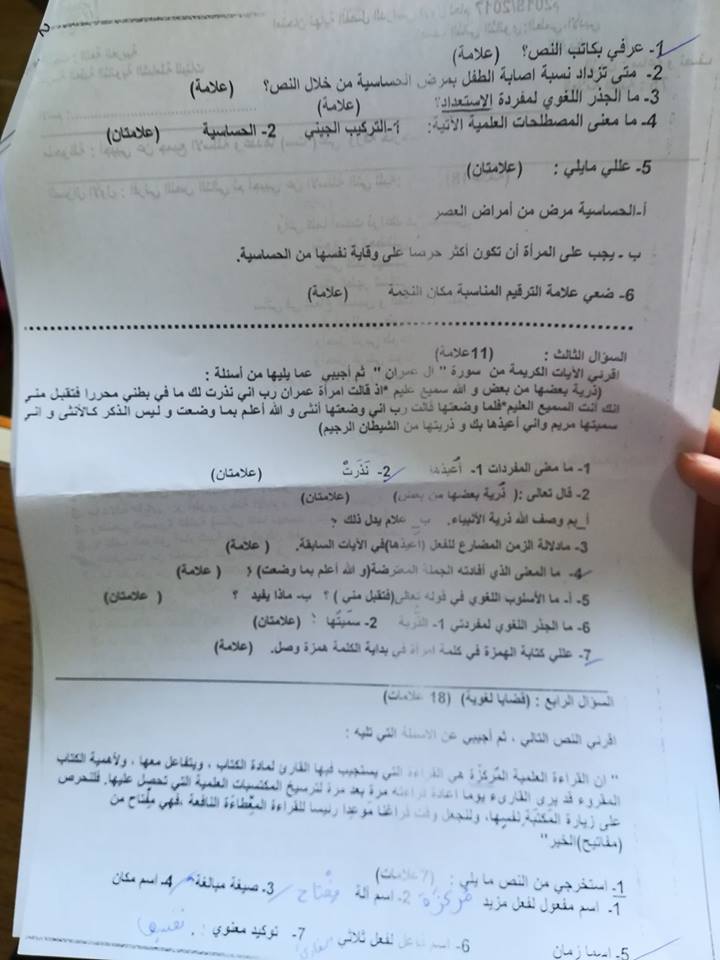 1- عرفي بكاتب النص؟ (علامة)
2- متى تزداد نسبة اصابة الطفل بمرض الحساسية من خلال النص؟ (علامة)
3- ما الجذر اللغوي لمفردة الاستعداد؟ (علامة)
4- ما معنى المصطلحات العلمية الآتية: 1-التركيب الجيني 2- الحساسية (علامتان)
5- عللي مايلي : (علامتان)
أ-الحساسية مرض من أمراض العصر
ب - يجب على المرأة أن تكون أكثر حرصا على وقاية نفسها من الحساسية.
6- ضعي علامة الترقيم المناسبة مكان النجمة (علامة)
السؤال الثالث : (11علامة)
اقرئي الآيات الكريمة من سورة " ال عمران " ثم أجيبي عما يليها من أسئلة :
(ذرية بعضها من بعض و الله سميع عليم *اذ قالت امرأة عمران رب اني نذرت لك ما في بطني محررا فتقبل مني
انك أنت السميع العليم*فلما وضعتها قالت رب اني وضعتها أنثى و الله أعلم بما وضعت و ليس الذكر كالأنثى و اني
سميتها مريم واني أعيذها بك و ذريتها من الشيطان الرجيم)
1- ما معنى المفردات 1- أعيذها 2- نَذَرتْ (علامتان)
2- قال تعالى :( ذُرية بعضها من بعض) (علامتان)
أ_بم وصف الله ذرية الأنبياء. ب_ علام يدل ذلك ؟
3- مادلالة الزمن المضارع للفعل (اعيذها)في الآيات السابقة. ( علامة)
4- ما المعنى الذي أفادته الجملة المعترضة(و الله أعلم بما وضعت) ؟ ( علامة)
5- أ- ما الأسلوب اللغوي في قوله تعالى(فتقبل مني ) ؟ ب- ماذا يفيد ؟ ( علامتان)
6- ما الجذر اللغوي لمفردتي 1- الذُرية 2- سمّيتُها ؟ (علامتان)
7- عللي كتابة الهمزة في كلمة امرأة في بداية الكلمة همزة وصل. (علامة)
السؤال الرابع : (قضايا لغوية) (18 علامات)
اقرئي النص التالي ، ثم أجيبي عن الاسئلة التي تليه :
" ان القراءة العلمية المُركزّة هي القراءة التي يستجيب فيها القارئ لمادة الكتاب ، ويتفاعل معها ، ولأهمية الكتاب
المقروء قد يرى القارىء يوما اعادة قراءته مرة بعد مرة لترسيخ المكتسبات العلمية التي تحصل عليها. فلنحرص
على زيارة المكتبّة نفسِها، ولنجعل وقت فراغنا مَوعِدا رئيسا للقراءة المِعطاءَة النافعة ،فهي مِفتاح من
(مفاتيح)الخير"
1- استخرجي من النص ما يلي : (7علامات)
1- اسم مفعول لفعل مزيد مُركزّة 2- اسم آلة مفتاح 3- صيغة مبالغة 4- اسم مكان
5- اسما زمان 6- اسم فاعل لفعل ثلاثي 7- توكيد معنوي :